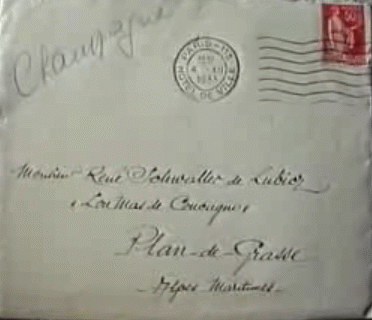 Champagne
PARIS
HOTEL DE VILLE
50
Monsieur René Schwaller de Lubicz
« Lou Mas de Coucagno »
Plan-de-Grasse
Alpes Maritimes